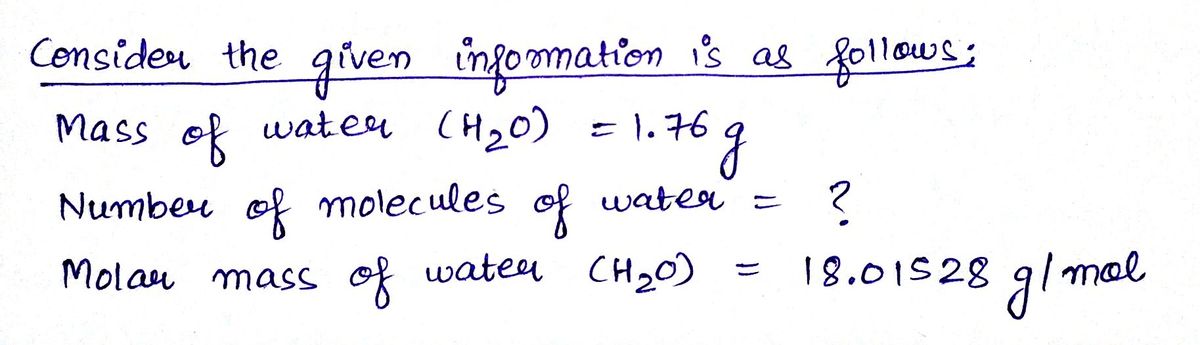 Consider the given information is as follows:
Mass of water (H₂O) = 1.76 g
Number of molecules of water = ?
Molar mass of water (H₂O) = 18.01528 g/mol